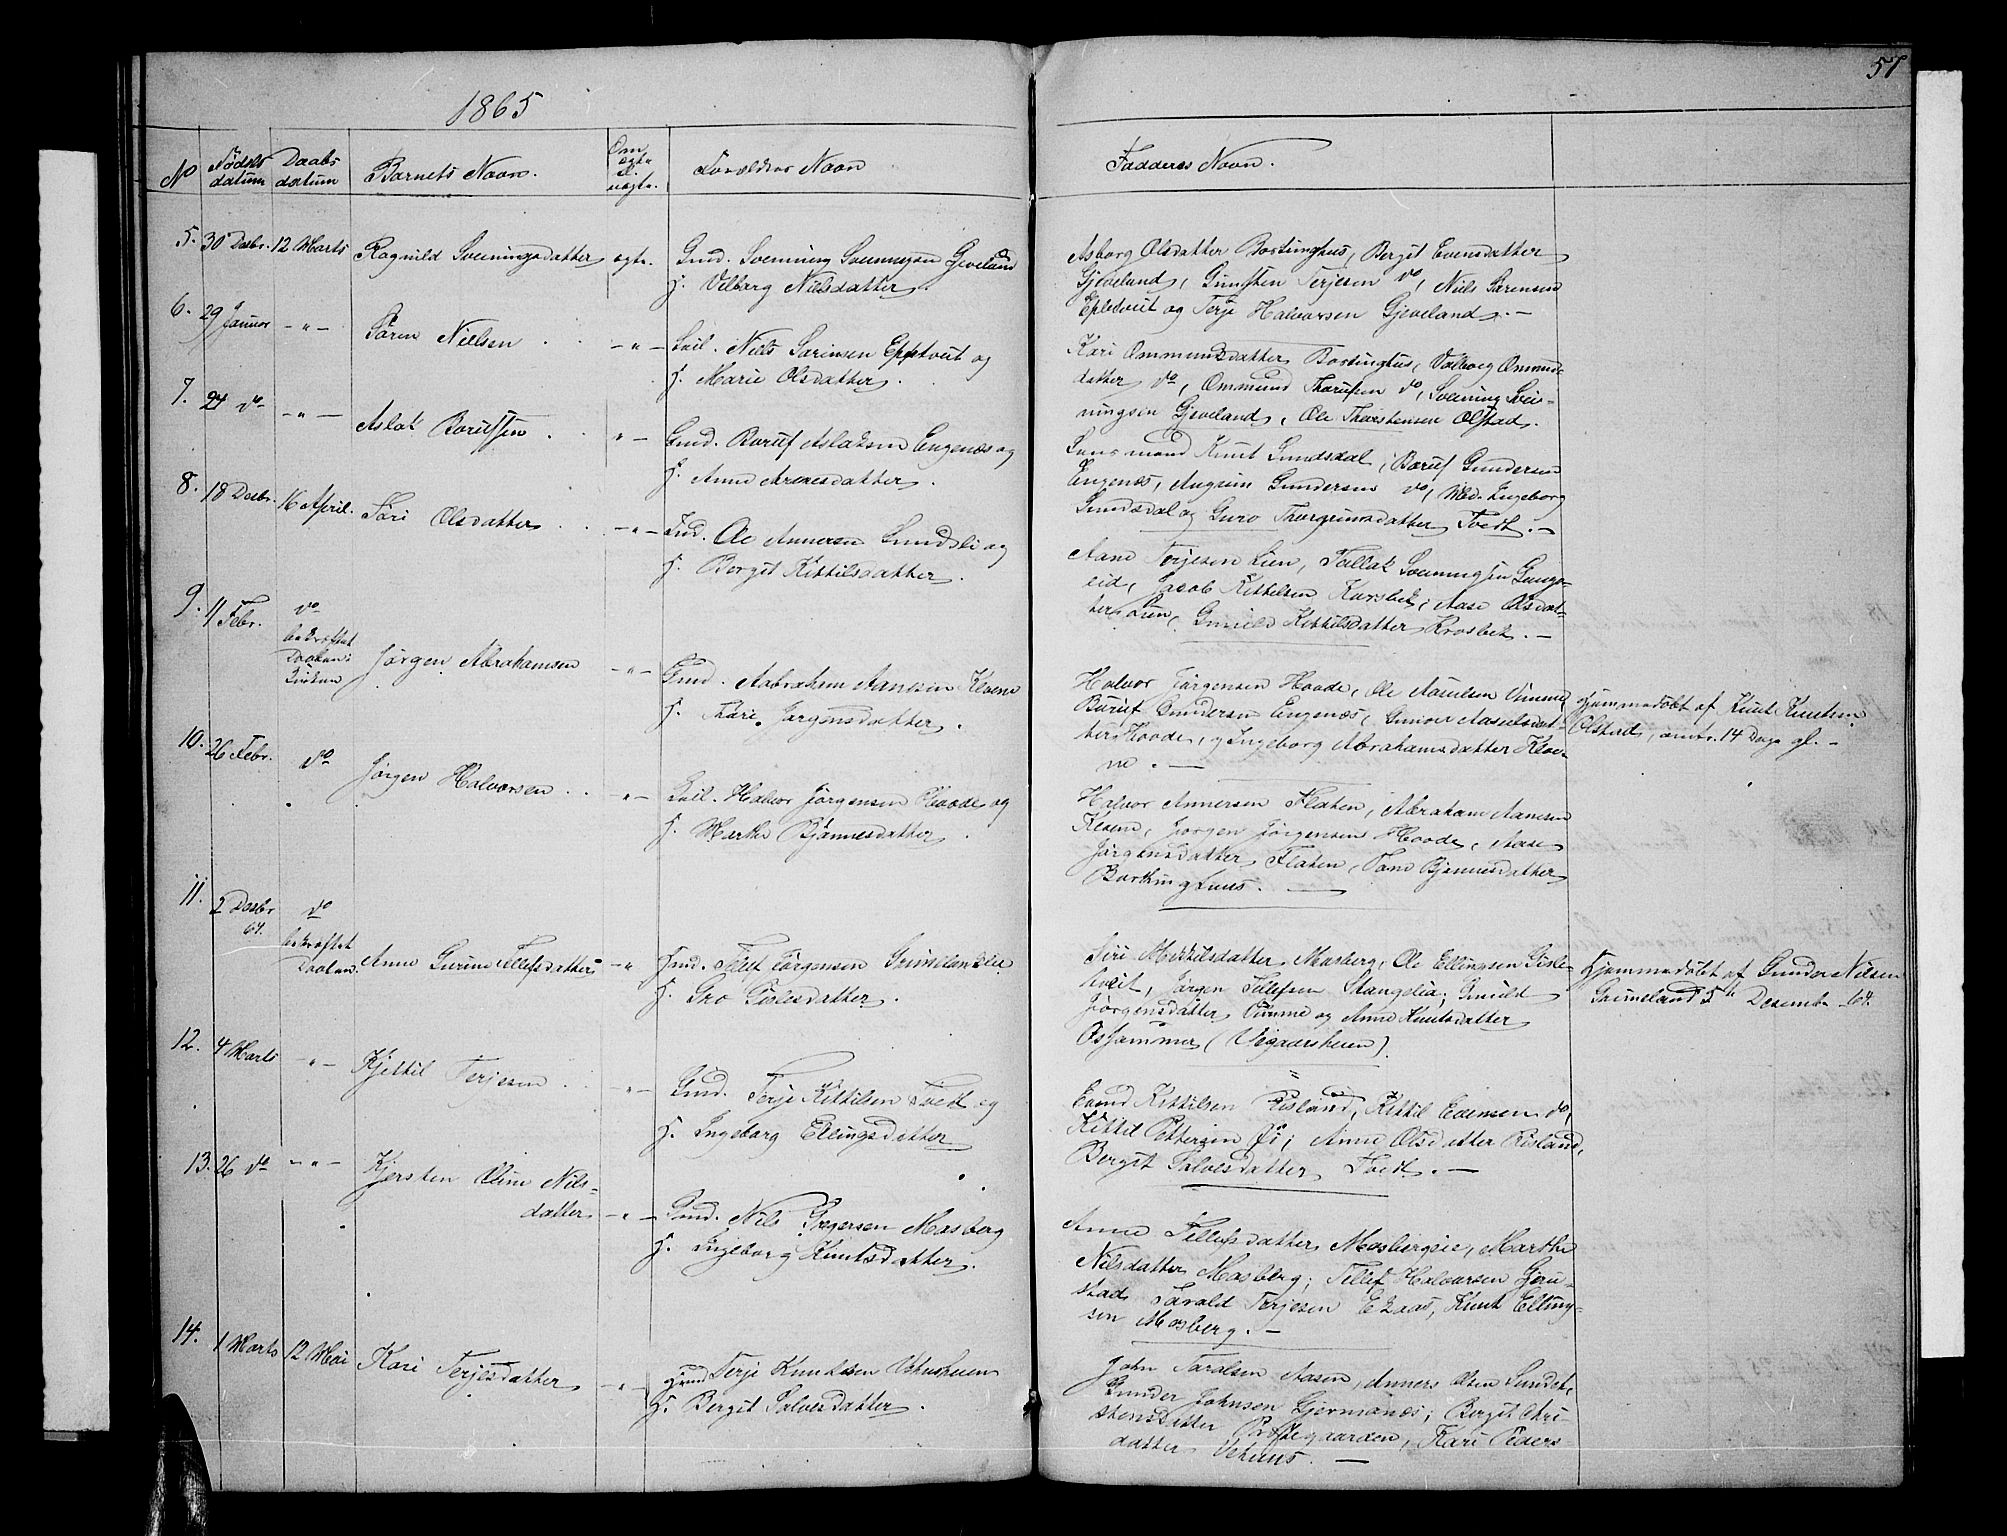 57
1865
No
Födsels
datum
Daabs
datum
Barnets Navn.
Om
ægte
el.
uægte.
Forældres Navn
Fadderes Navn.
5. 30 Desbr. 12 Marts Ragnild Sveiningsdatter ægte. Gmd. Sveining Sveiningsen Gjeveland
F. Valborg Nielsdatter.
Asborg Olsdatter Bostinghus, Bergit Evensdatter
Gjeveland, Gunsten Terjesen do, Niels Sørensen
Epletveit og Terje Halvorsen Gjeveland. —
6. 29 Januar —"— Sören Nielsen —"— Leil. Niels Sörensen Epletveit og
F. Marie Olsdatter.
Kari Ommundsdatter Bostinghus, Valborg Ommunds-
datter do, Ommund do, Sveining Svei-
ningsen Gjeveland, Ole Thorstensen Ølstad.
7. 24 do —"— Aslak Baruffsen "— Gmd. Baruf Aslaksen Engenæs og
F. Anne datter.
Lensmand Knut Sundsdal, Baruf Gundersen
Engenæs, Gundersen do, Mad. Ingeborg
Sundsdal og Guro Thorgrimsdatter Tvedt. —
8. 18 Desbr. 16 April. Siri Olsdatter —"— Ind. Ole Annersen Sundsli og
F. Bergit Kittilsdatter.
Aane Terjesen Lien, Tallak Sveiningsen
eid, Jacob Kittelsen Kassbek, Aase Olsdat-
ter Lien, Gunild Kittilsdatter Krosbek. —
9. 11 Febr. do
bekræftet
Daaben i
Kirken
Jörgen Abrahamsen —"— Gmd. Aabraham Aanesen Klevene
F. Thöri Jörgensdatter.
Halvor Jörgensen Haade, Ole Asulfsen Vimme,
Baruf Gundersen Engenæs, Asulfsdat-
ter Haade, og Ingeborg Abrahamsdatter Kleve-
ne. —
Hjemmedöbt af Knut Knutsen
Ølstad, omtr. 14 Dage gl. —
10. 26 Febr. do Jörgen Halvorsen "— Leil. Halvor Jörgensen Haade og
F. Marthe Bjönnesdatter.
Halvor Annersen Flaten, Abraham Aanesen
Klevene, Jörgen Jörgensen Haade, Aase
Jörgensdatter Flaten, Tone Bjönnesdatter
Bostinghus. —
11. 2 Desbr
64. do
bekræftet
Daaben.
Anne Gurine Tellefsdatter —" Gmd. Tellef Törgensen Grimeland
F. Gro Gislesdatter.
Siri Mickilsdatter Masberg, Ole Ellingsen Gisle-
tveit, Jörgen Tellefsen Stangelia, Gunild
Jörgensdatter Vimme og Anne Knutsdatter
Oshammer (Vegaarsheien).
Hjemmedöbt af Gunder Nilsen
Grimeland 5te Desembr 64.
12. 4 Marts —"— Kjittil Terjesen "— Gmd. Terje Kittilsen Tvedt og
F. Ingeborg Ellingsdatter
Evind Kittilsen Risland, Kittil Evensen do,
Kittil Pettersen Li, Anne Olsdatter Risland,
Bergit Salvesdatter Tvedt. —
13. 26 do —"— Kjersten Oline Nils-
datter —"— Gmd. Nils Gregersen Masberg
F. Ingeborg Knutsdatter.
Anne Tellefsdatter Masbergeie, Marthe
Nilsdatter Masberg, Tellef Halvorsen Gjeru-
stad, Tarald Terjesen Egaas, Knut Elling-
sen Masberg. —
14. 1 Marts 12 Mai Kari Terjesdatter —"— Gmd Terje Knutsen Vehusheien
F. Bergit Salvesdatter.
John Taralsen Aasen, Anners Olsen Sundsli,
Gunder Johnsen Gjermanæs, Bergit Chri-
stensdatter Præstegaarden, Kari Peders
datter Vehuus. —